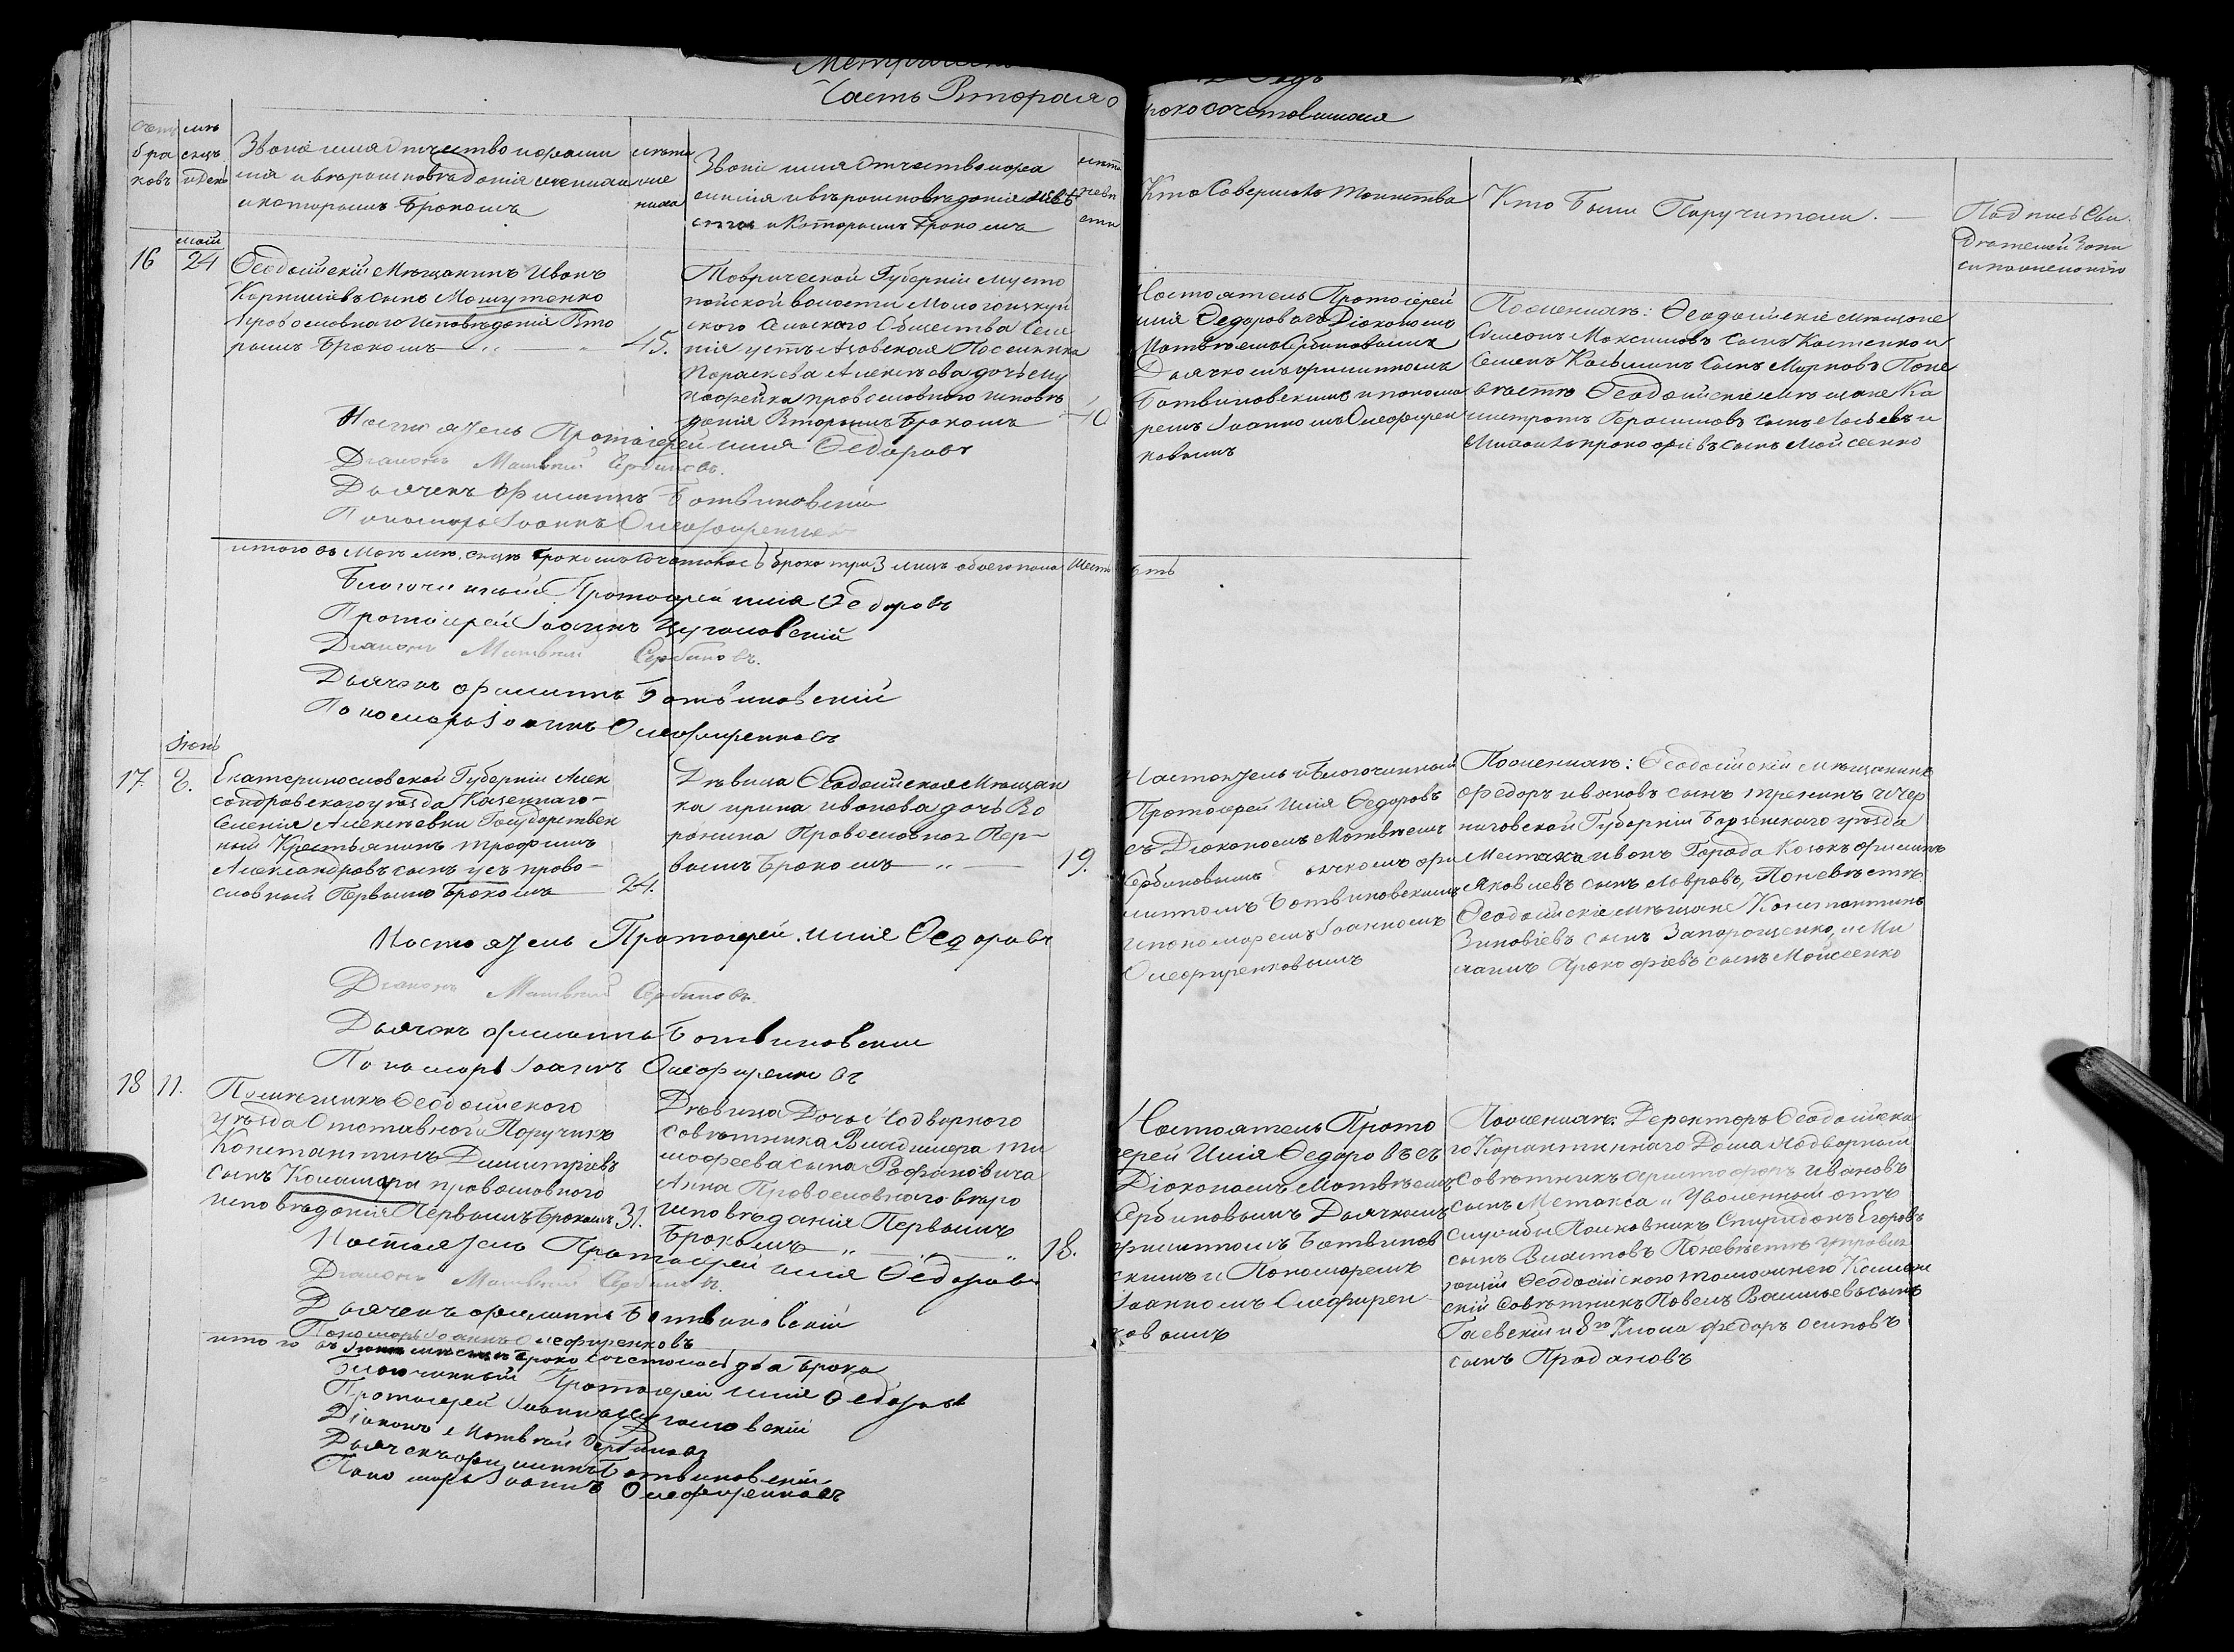 Часть Вторая о
бракосочетавшихся
Счетъ
бра
ковъ
мѣ
сяцъ
и День
Званіе имя отчество и фами
лія и вѣроисповѣданія жениха
и которымъ бракомъ
лѣта
же
ниха
Званіе имя отчество и фа
милія и вѣроисповѣданія невѣ
сты и Которымъ бракомъ
лѣта
невѣ
сты
Кто Совершалъ Таинства
Кто Были Поручители. —
Подпись Сви
дѣтелей Запи
си по желанію
16
маій
24
Ѳеодосійскій Мѣщанинъ Иванъ
Корниліевъ сынъ Мошутенко
православнаго исповѣданія Вто
рымъ бракомъ
45.
Таврической Губерніи
волости
скаго Сельскаго Общества Селе
нія Поселянка
Параскева Алексѣева дочь
православнаго исповѣ
данія Вторымъ бракомъ
40
Настоятель Протоіерей
Илія Ѳедоровъ съ Діакономъ
Матвѣемъ Сербиновымъ
Дьячкомъ Филиппомъ
Ботвиновскимъ и понома
ремъ Іоанномъ Олефирен
ковымъ
По женихѣ: Ѳеодосійскіе мѣщане
Симеонъ Максимовъ сынъ Костенко и
Семенъ Косьминъ сынъ Марковъ По не
вѣстѣ Ѳеодосійскіе мѣщане Ка
листратъ Герасимовъ сынъ и
Михаилъ Прокофіевъ сынъ Мойсеенко
Настоятель Протоіерей Илія Ѳедоровъ
Діаконъ Матвѣй Сербиновъ.
Дьячекъ Филиппъ Ботвиновскій
Пономарь Іоаннъ Олефиренковъ
итого въ Маѣ мѣсяцѣ бракомъ сочеталось брака три 3 лицъ обоего пола шесть
Благочинный Протоіерей Илія Ѳедоровъ
Протоіерей Іоаннъ
Діаконъ Матвѣй Сербиновъ.
Дьячекъ Филиппъ Ботвиновскій
Пономарь Іоаннъ Олефиренковъ
17.
Іюнь
8.
Екатеринославской Губерніи Алек
сандровскаго уѣзда Казеннаго
Селенія Алексѣевки Государствен
ный Крестьянинъ Трофимъ
Александровъ сынъ Усъ право
славный Первымъ бракомъ
24.
Дѣвица Ѳеодосійская Мѣщан
ка Ирина Иванова дочь Во
ронина Православная Пер
вымъ бракомъ
19.
Настоятель и Благочинный
Протоіерей Илія Ѳедоровъ
съ Діакономъ Матвѣемъ
Сербиновымъ Дьячкомъ Фи
липпомъ Ботвиновскимъ
и пономаремъ Іоанномъ
Олефиренковымъ
По женихѣ: Ѳеодосійскій мѣщанинъ
Федоръ Ивановъ сынъ и Чер
ниговской Губерніи Борзенскаго уѣзда
Местечка Иванъ Города Козакъ Филиппъ
Яковлевъ сынъ Лавровъ, По невѣстѣ
Ѳеодосійскіе мѣщане Константинъ
Зиновіевъ сынъ Запорощенко, и Ми
хаилъ Прокофіевъ сынъ Мойсеенко
Настоятель Протоіерей Илія Ѳедоровъ
Діаконъ Матвѣй Сербиновъ.
Дьячекъ Филиппъ Ботвиновскій
Пономарь Іоаннъ Олефиренковъ
18
11.
Помѣщикъ Ѳеодосійскаго
уѣзда Отставной Поручикъ
Константинъ Димитріевъ
сынъ православнаго
исповѣданія Первымъ бракомъ
31.
Дѣвица Дочь Надворнаго
совѣтника Владимера Ти
мофеева сына Рафановича
Анна Православнаго вѣро
исповѣданія Первымъ
бракомъ
18.
Настоятель Прото
іерей Илія Ѳедоровъ съ
Діакономъ Матвѣемъ
Сербиновымъ Дьячкомъ
Филиппомъ Ботвинов
скимъ и Пономаремъ
Іоанномъ Олефирен
ковымъ
По женихѣ: Деректоръ Ѳеодосійска
го Карантиннаго Дома Надворный
Совѣтникъ Аристофанъ Ивановъ
сынъ Метакса и Уволенный отъ
службы Полковникъ Спиридонъ Егоровъ
сынъ Властовъ По невѣстѣ управля
ющій Ѳеодосійскою таможнею Коллеж
скій Совѣтникъ Павелъ Васильевъ сынъ
Гаевскій и 8го Класа Федоръ Осиповъ
сынъ Продановъ
Настоятель Протоіерей Илія Ѳедоровъ
Діаконъ Матвѣй Сербиновъ.
Дьячекъ Филиппъ Ботвиновскій
Пономарь Іоаннъ Олефиренковъ
итого въ Іюнѣ мѣсяцѣ брако сочеталось два брака
Благочинный Протоіерей Илія Ѳедоровъ
Протоіерей Іоаннъ
Діаконъ Матвѣй Сербиновъ
Дьячекъ Филиппъ Ботвиновскій
Пономарь Іоаннъ Олефиренковъ